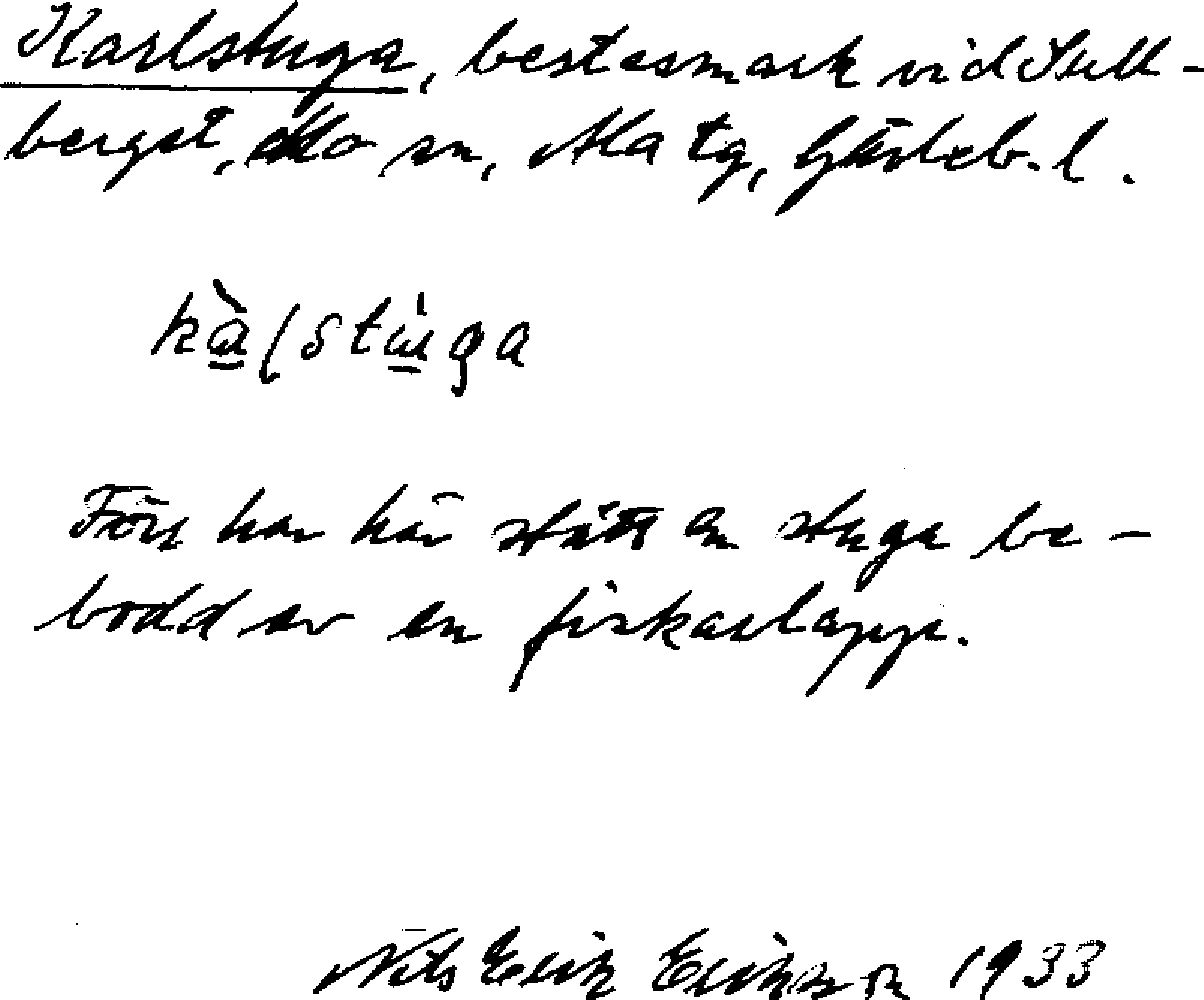 Karlstuga, betesmark vid Kull-
berget, Mo sn, Ala tg, Gävleb. l.
kàlstùga
Förr har här stått en stuga be-
bodd av en fiskarlapp.
Nils Erik Eriksson 1933